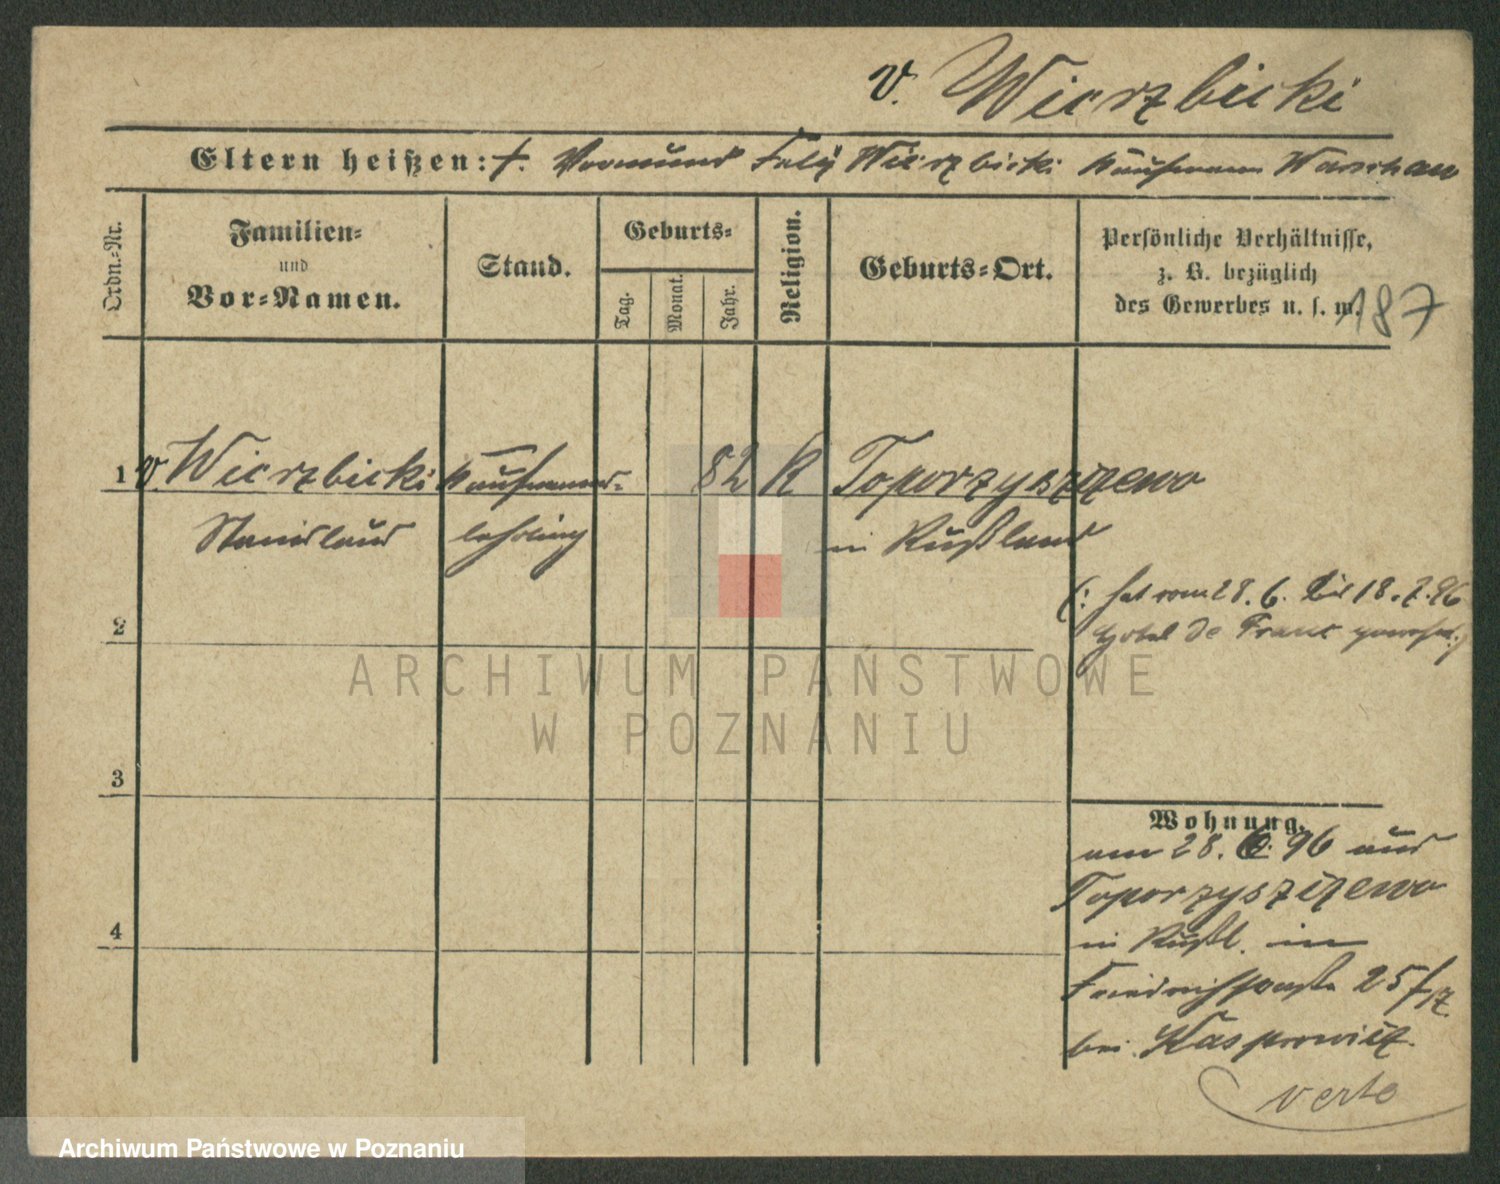 v. Wierzbicki
Eltern heißen: †. Vormund Felix Wierzbicki Kaufmann Warschau
Ordn.-Nr.
Familien-
und
Vor-Namen.
Stand.
Geburts-
Tag.
Monat.
Jahr.
Religion.
Geburts-Ort.
Persönliche Verhältnisse,
z. B. bezüglich
des Gewerbes u. s. w.
187
1 v. Wierzbicki Kaufmanns- 82 K Toporzyszczewo
Stanislaus lehrling in Rußland
(: hat vom 28. 6. bis 18. 7. 96
Hotel de France gewohnt :)
2
3
4
Wohnung.
am 28. 6. 96 aus
Toporzyszczewo
in Rußl. in
Friedrichstraße 25
bei Kasprowicz.
verte
ARCHIWUM PAŃSTWOWE
W POZNANIU
Archiwum Państwowe w Poznaniu